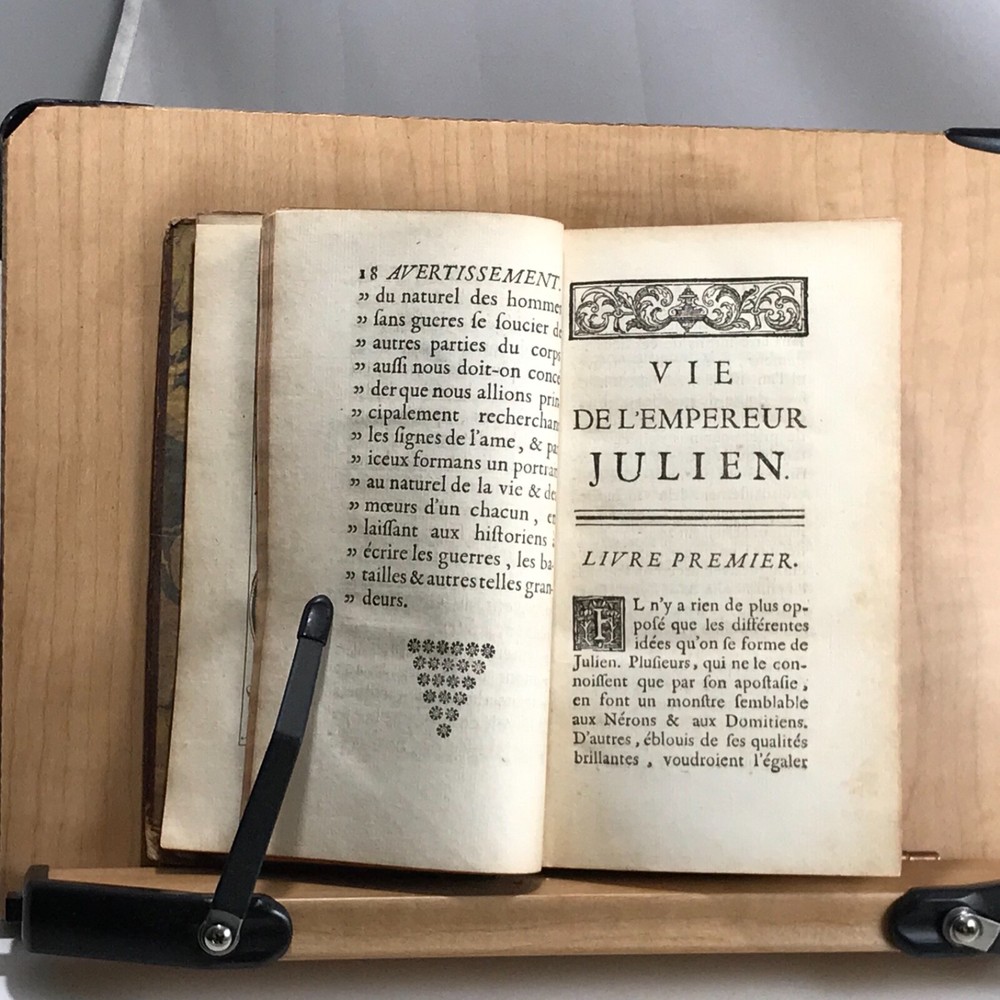 18 AVERTISSEMENT.
„ du naturel des homme
„ ſans gueres ſe ſoucier de
„ autres parties du corps
„ auſſi nous doit-on conce
„ der que nous allions prin
„ cipalement recherchan
„ les ſignes de l'ame, & pa
„ iceux formans un portrai
„ au naturel de la vie & de
„ mœurs d'un chacun, en
„ laiſſant aux hiſtoriens à
„ écrire les guerres, les ba-
„ tailles & autres telles gran-
„ deurs.
VIE
DE L'EMPEREUR
JULIEN.
LIVRE PREMIER.
IL n'y a rien de plus op-
poſé que les différentes
idées qu'on ſe forme de
Julien. Pluſieurs, qui ne le con-
noiſſent que par ſon apoſtaſie,
en font un monſtre ſemblable
aux Nérons & aux Domitiens.
D'autres, éblouis de ſes qualités
brillantes, voudroient l'égaler